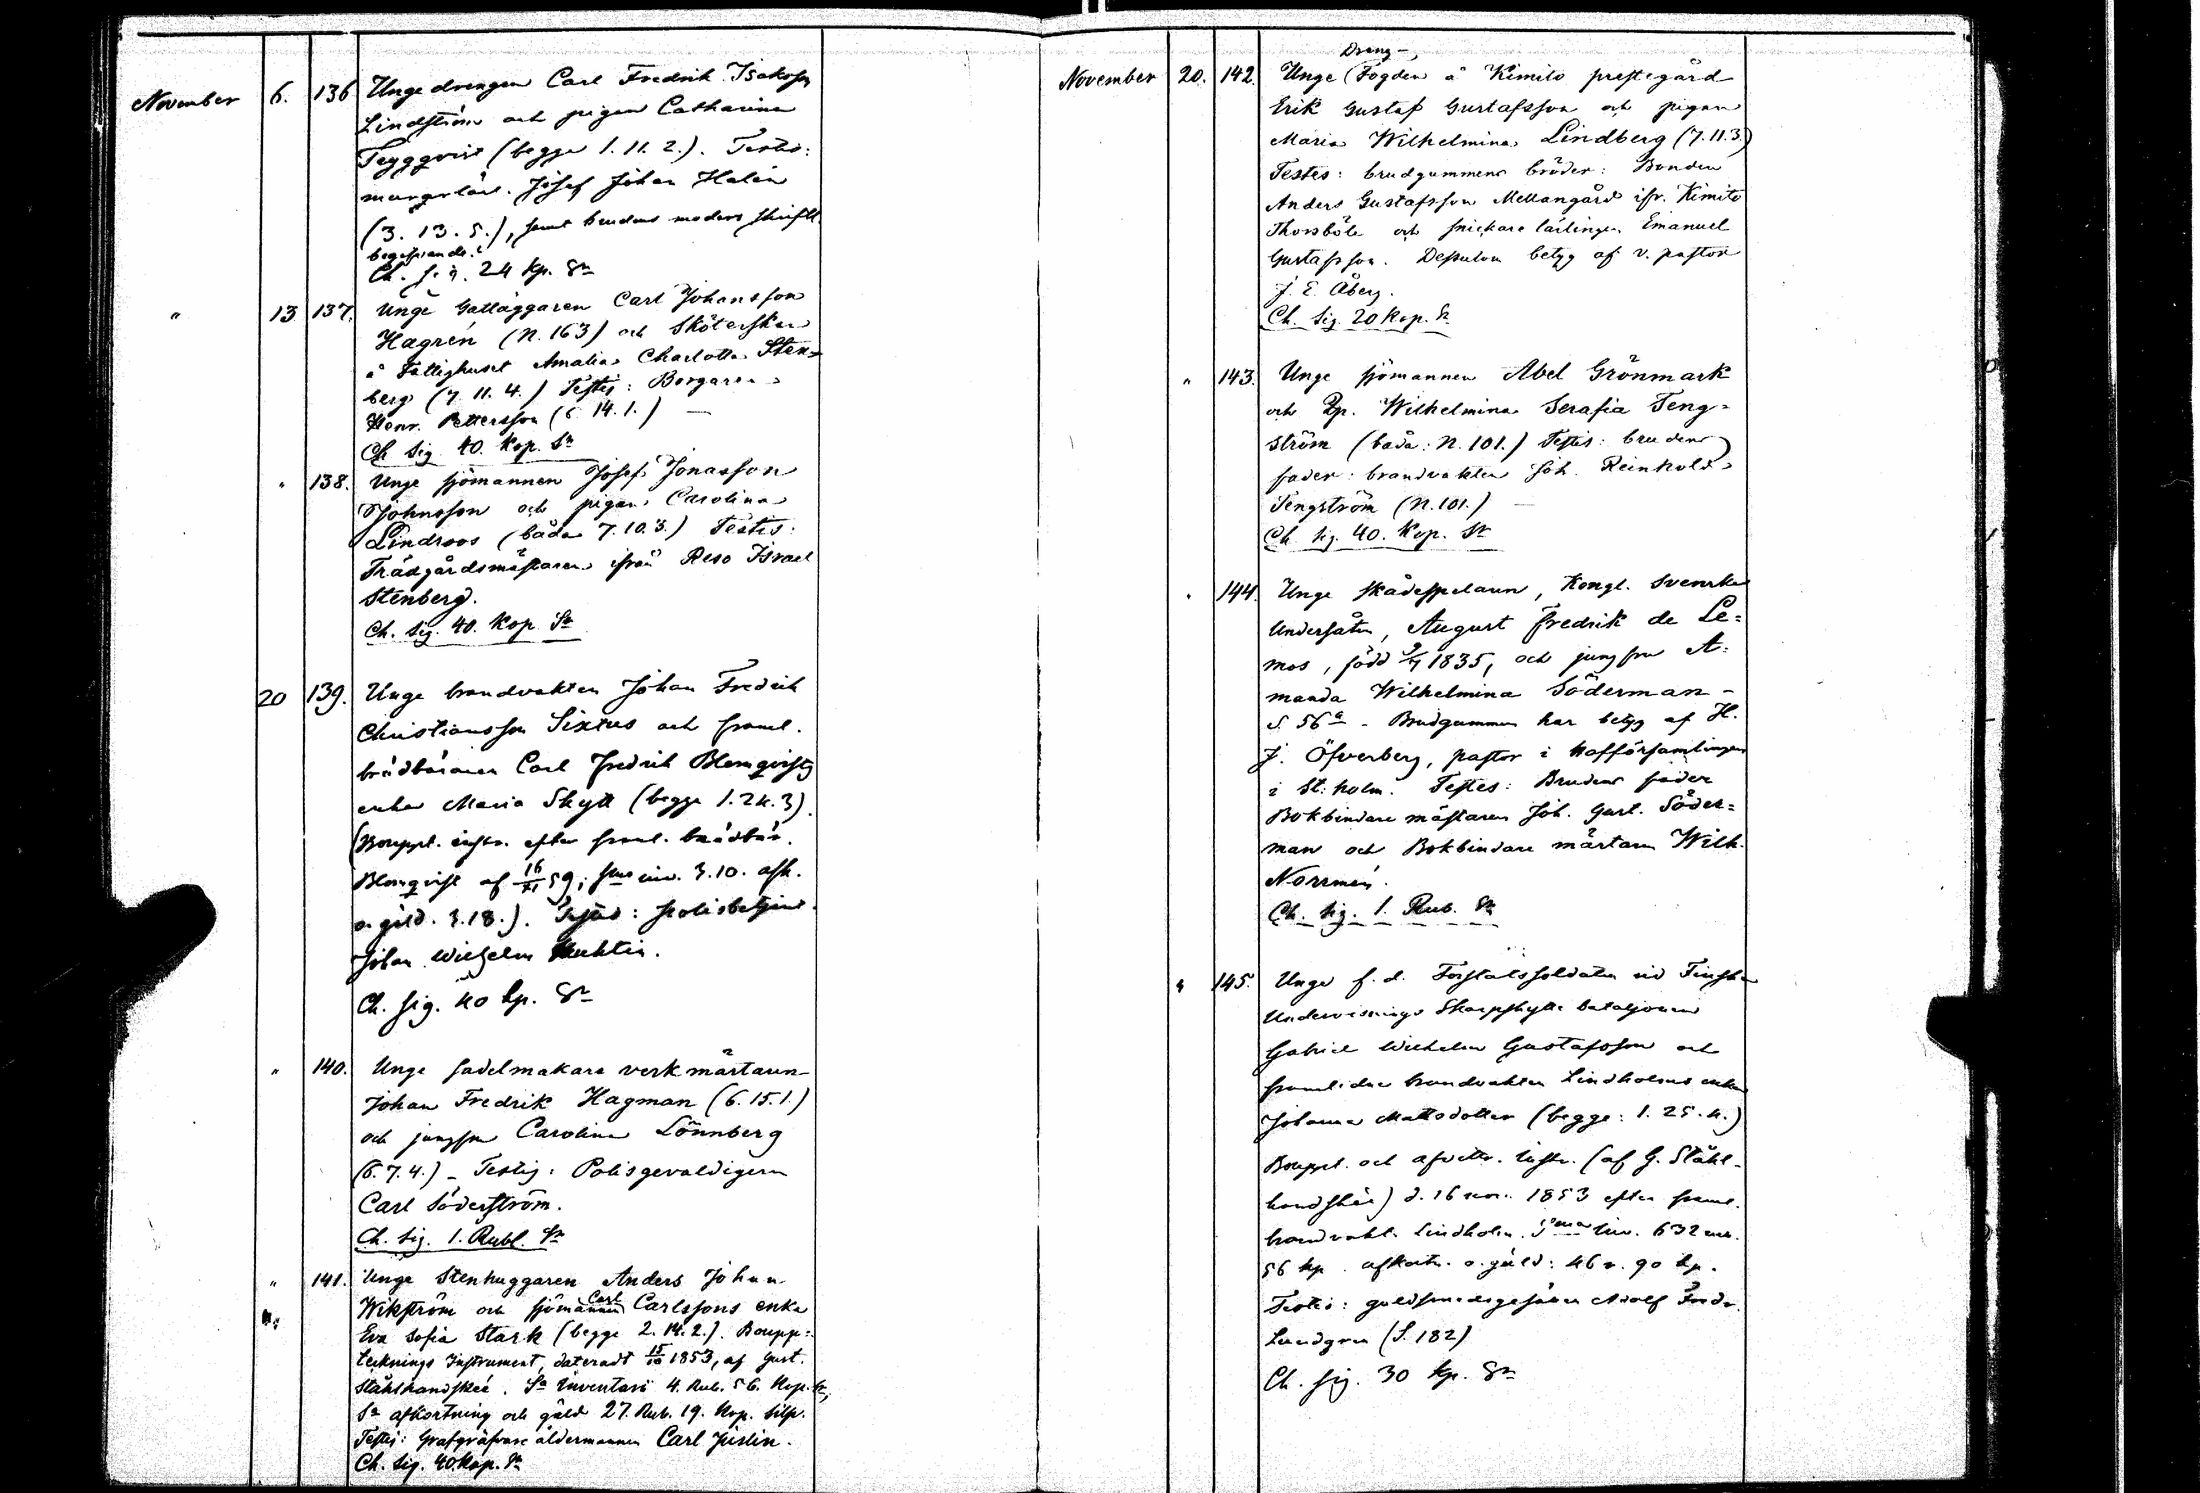 November 6. 136 Unge drengen Carl Fredrik Isaksson
Lindström och pigan Catharina
Teyggqvist (begge 1. 11. 2.). Testis:
Josef Johan Halén
(3. 13. 5.), samt brudens moders skriftl.
begifvande.
Ch. s. a. 24 kp. Sr
" 13 137. Unge Gatläggaren Carl Johansson
Hagrén (N. 163) och Sköterskan
å Fattighuset Amalia Charlotta Sten=
berg (7. 11. 4.) Testis: Borgaren
Henr. Pettersson (6. 14. 1.) —
Ch Sig. 40. Kop. Sr
" 138. Unge sjömannen Josef Jonasson
Johnsson och pigan Carolina
Lindroos (båda 7. 10. 3.) Testis:
Trädgårdsmästaren ifrån Reso Israel
Stenberg.
Ch. Sig. 40. Kop Sr
20 139. Unge brandvakten Johan Fredrik
Christiansson Sixtus och framl.
brädbäraren Carl Fredrik Blomqvists
enka Maria Skytt (begge 1. 24. 3).
(Bouppt. instr. efter framl. brädbär.
Blomqvist af 16/11 59; inv. 3.10. afk.
o. gäld. 3.18.). Testis: polisbetjent.
Johan Wilhelm
Ch. sig. 40 kp. Sr
" 140. Unge sadelmakare verkmästaren
Johan Fredrik Hagman (6. 15. 1.)
och jungfru Carolina Lönnberg
(6. 7. 4.) – Testis: Polisgevaldigern
Carl Söderström.
Ch. Sig. 1. Rubl. Sr
" 141. Unge Stenhuggaren Anders Johan
Wikström och sjömannen Carl Carlssons enka
Eva Sofia Stark (begge 2. 14. 2.). Boupp=
tecknings Instrument, dateradt 15/10 1853, af Gust.
Stålhandské. Sa Inventarii 4. Rub. 56. Kop. Sr,
Sa afkortning och gäld 27. Rub. 19. Kop. Silfv.
Testis: Grafgräfvare åldermannen Carl Juslin.
Ch. Sig. 40 Kop. Sr
November 20. 142. Unge Dreng- Fogden å Kimito prestegård
Erik Gustaf Gustafsson och pigan
Maria Wilhelmina Lindberg (7. 11. 3.)
Testes: brudgummens bröder: Bonden
Anders Gustafsson Mellangård ifr. Kimito
Thorsböle och snickare lärlingen Emanuel
Gustafsson. Dessutom betyg af v. pastor
J. E. Åberg.
Ch. Sig. 20 Kop. Sr
" 143. Unge sjömannen Abel Grönmark
och Wilhelmina Serafia Teng=
ström (båda: N. 101.) Testis: brudens
fader: brandvakten Joh. Reinhold
Tengström (N. 101.) —
Ch Sig. 40. Kop. Sr
" 144. Unge skådespelaren, Kongl. Svenska
Undersåten, August Fredrik de Le=
mos, född 9/7 1835, och jungfru A=
manda Wilhelmina Söderman –
S 56 a – Brudgummen har betyg af H.
J. Öfverberg, pastor i Hofförsamlingen
i St:holm. Testes: Brudens fader
Bokbindare mästaren Joh. Gust. Söder=
man och Bokbindare mästaren Wilh.
Norrmén.
Ch. Sig. 1. Rub. Sr
" 145. Unge f. d. Förstatssoldaten vid Finska
Undervisnings Skarpskytte bataljonen
Gabriel Wilhelm Gustafsson och
framlidne brandvakten Lindholms enka
Johanna Mattsdotter (begge: 1. 25. 4.)
Bouppt. och afvittr. instr. (af G. Stål-
handské) d. 16 nov. 1853 efter framl.
brandvakt. Lindholm. Summa inv. 632
56 kp. afkortn. o. gäld: 46 r. 90 kp.
Testis: guldsmedsgesällen Adolf Fredr.
Lundgren (S. 182)
Ch. sig. 30 kp. Sr